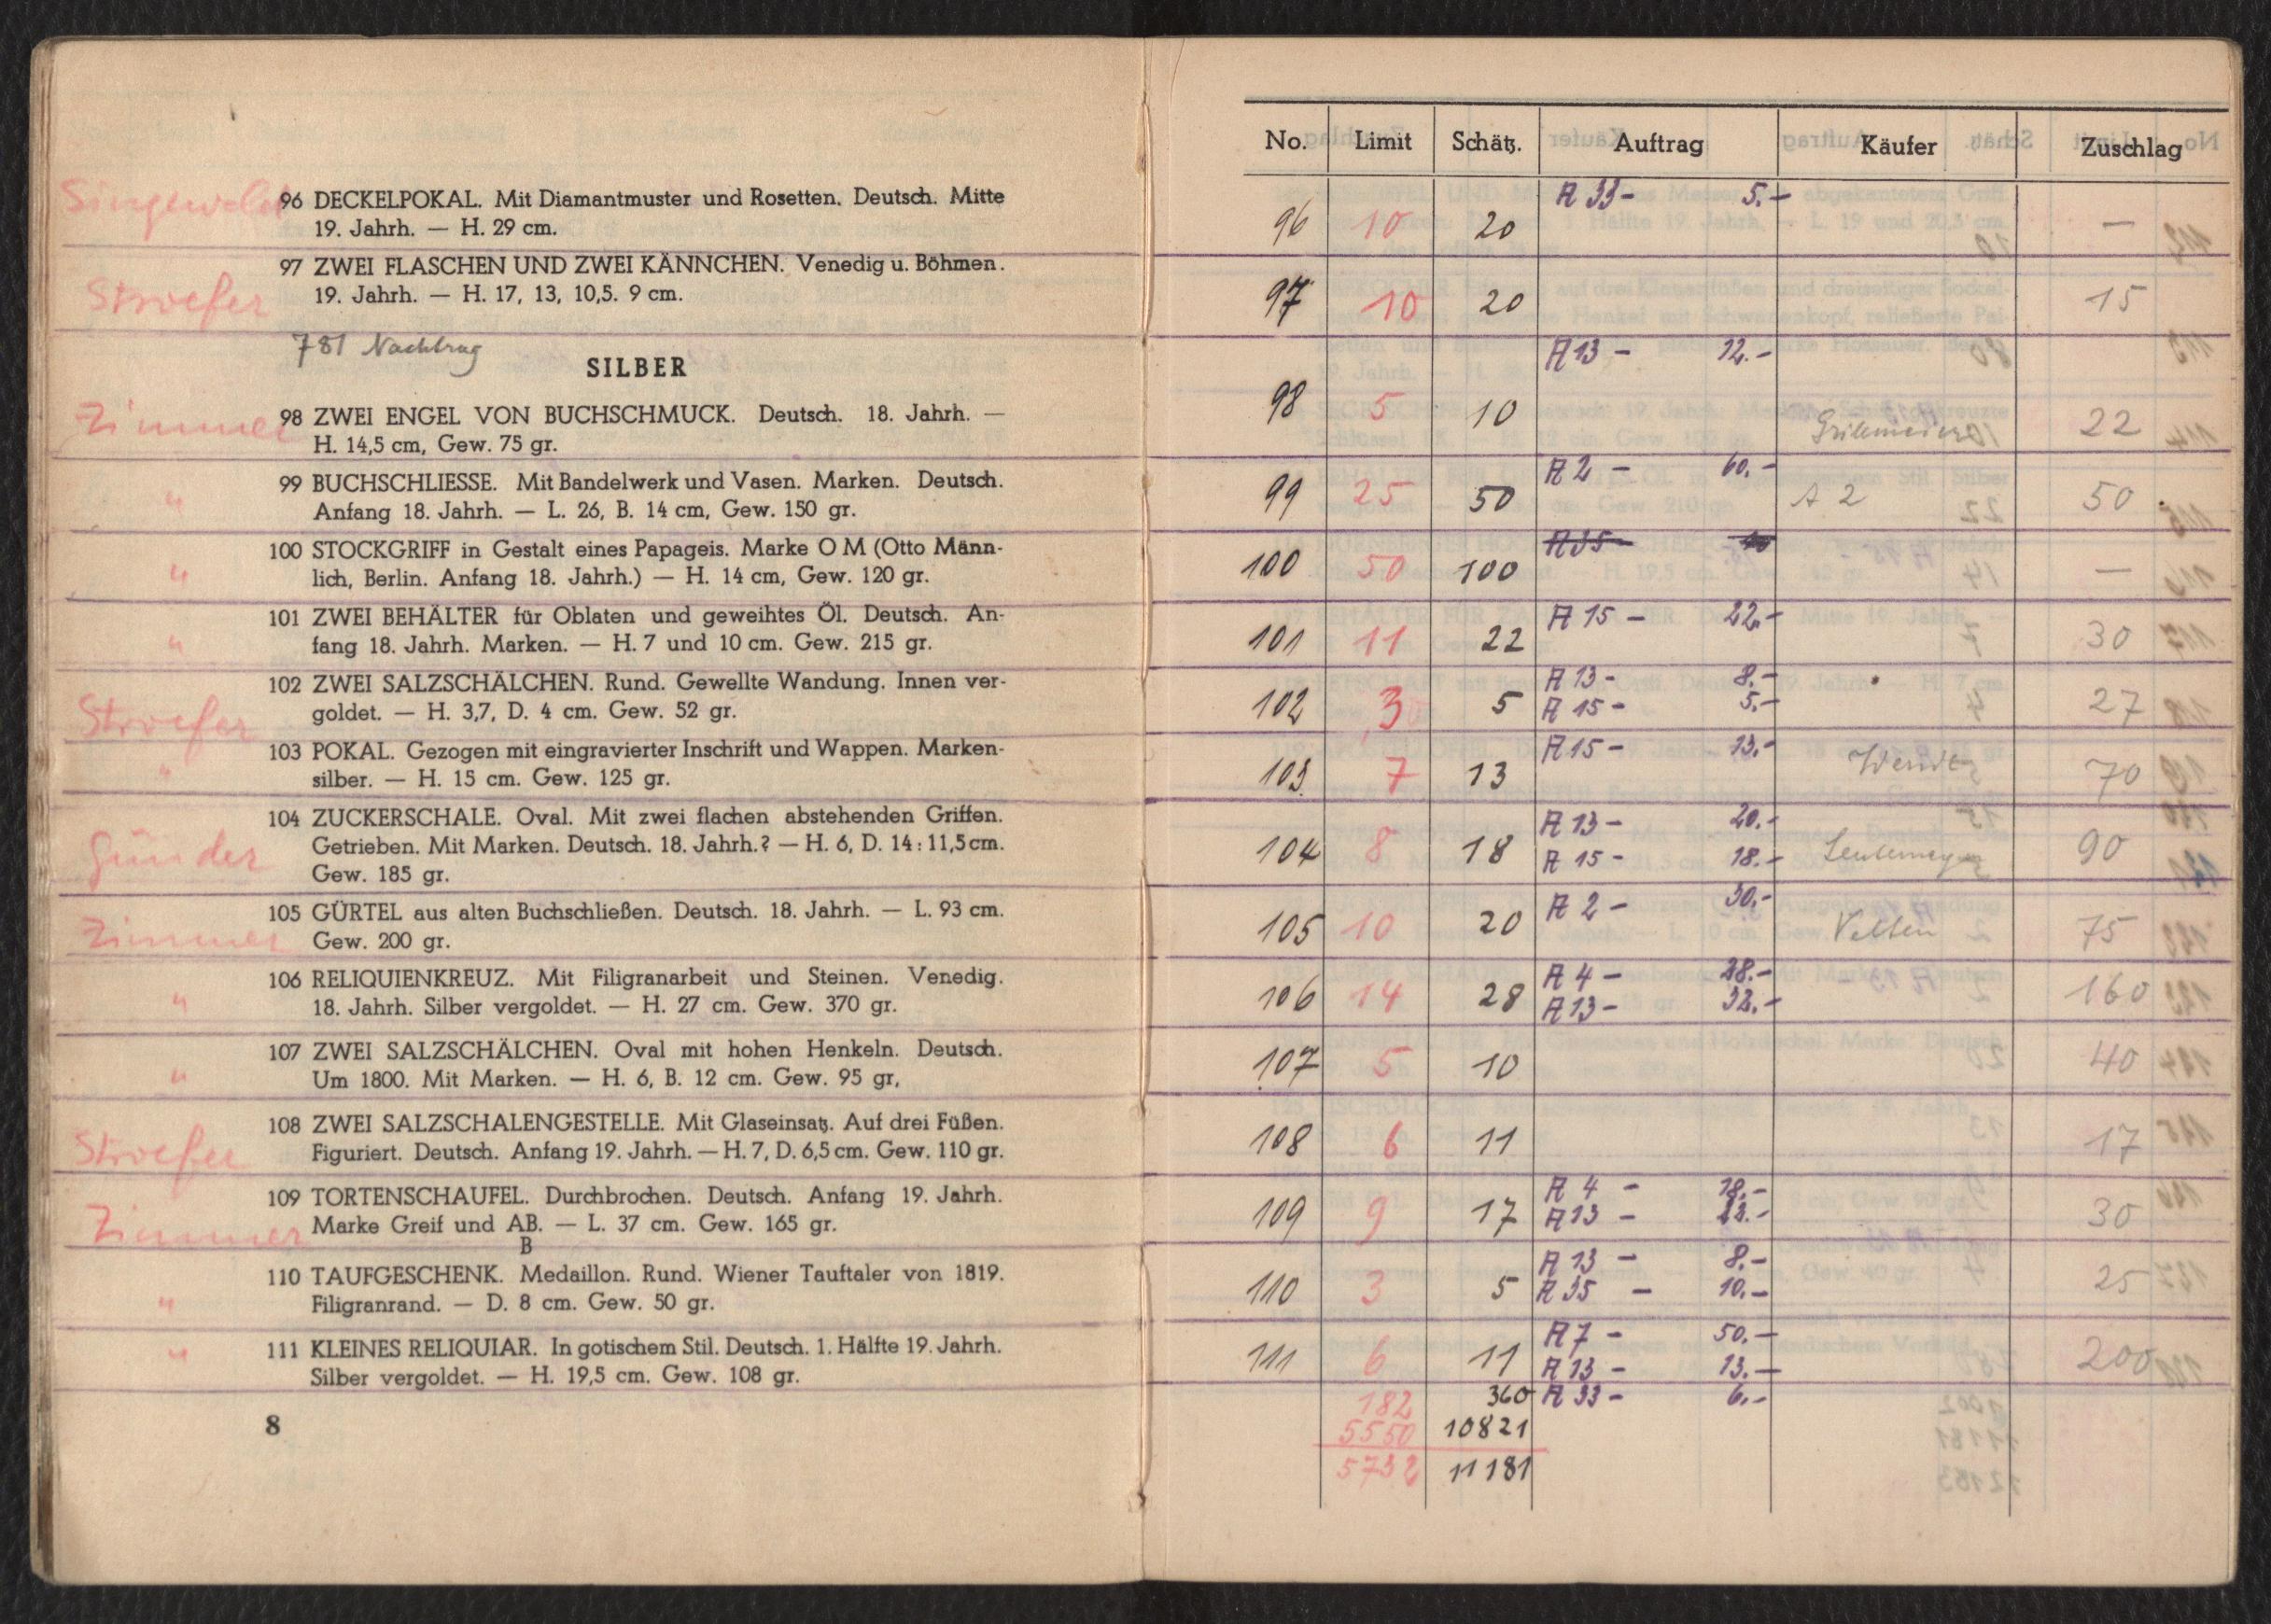 Singewald
96 DECKELPOKAL. Mit Diamantmuster und Rosetten. Deutsch. Mitte
19. Jahrh. — H. 29 cm.
Stroefer
97 ZWEI FLASCHEN UND ZWEI KÄNNCHEN. Venedig u. Böhmen.
19. Jahrh. — H. 17, 13, 10,5. 9 cm.
781 Nachtrag
SILBER
Zimmer
98 ZWEI ENGEL VON BUCHSCHMUCK. Deutsch. 18. Jahrh. —
H. 14,5 cm, Gew. 75 gr.
99 BUCHSCHLIESSE. Mit Bandelwerk und Vasen. Marken. Deutsch.
" Anfang 18. Jahrh. — L. 26, B. 14 cm, Gew. 150 gr.
100 STOCKGRIFF in Gestalt eines Papageis. Marke O M (Otto Männ-
" lich, Berlin. Anfang 18. Jahrh.) — H. 14 cm, Gew. 120 gr.
101 ZWEI BEHÄLTER für Oblaten und geweihtes Öl. Deutsch. An-
" fang 18. Jahrh. Marken. — H. 7 und 10 cm. Gew. 215 gr.
102 ZWEI SALZSCHÄLCHEN. Rund. Gewellte Wandung. Innen ver-
Stroefer goldet. — H. 3,7, D. 4 cm. Gew. 52 gr.
103 POKAL. Gezogen mit eingravierter Inschrift und Wappen. Marken-
" silber. — H. 15 cm. Gew. 125 gr.
104 ZUCKERSCHALE. Oval. Mit zwei flachen abstehenden Griffen.
Günder Getrieben. Mit Marken. Deutsch. 18. Jahrh.? — H. 6, D. 14 : 11,5 cm.
Gew. 185 gr.
105 GÜRTEL aus alten Buchschließen. Deutsch. 18. Jahrh. — L. 93 cm.
Zimmer Gew. 200 gr.
106 RELIQUIENKREUZ. Mit Filigranarbeit und Steinen. Venedig.
" 18. Jahrh. Silber vergoldet. — H. 27 cm. Gew. 370 gr.
107 ZWEI SALZSCHÄLCHEN. Oval mit hohen Henkeln. Deutsch.
" Um 1800. Mit Marken. — H. 6, B. 12 cm. Gew. 95 gr,
108 ZWEI SALZSCHALENGESTELLE. Mit Glaseinsatz. Auf drei Füßen.
Stroefer Figuriert. Deutsch. Anfang 19. Jahrh. — H. 7, D. 6,5 cm. Gew. 110 gr.
109 TORTENSCHAUFEL. Durchbrochen. Deutsch. Anfang 19. Jahrh.
Zimmer Marke Greif und AB. — L. 37 cm. Gew. 165 gr.
B
110 TAUFGESCHENK. Medaillon. Rund. Wiener Tauftaler von 1819.
" Filigranrand. — D. 8 cm. Gew. 50 gr.
111 KLEINES RELIQUIAR. In gotischem Stil. Deutsch. 1. Hälfte 19. Jahrh.
" Silber vergoldet. — H. 19,5 cm. Gew. 108 gr.
8
No. Limit Schätz. Auftrag Käufer Zuschlag
A 33 – 5.–
96 10 20 —
97 10 20 15
A 13 – 12.–
98 5 10 22
A 2 – 60.–
99 25 50 A 2 50
A 35 –
100 50 100 —
A 15 – 22.–
101 11 22 30
A 13 – 8.–
102 3 5 A 15 – 5.– 27
A 15 – 13.–
103 7 13 Wendt 70
A 13 – 20.–
104 8 18 A 15 – 18.– 90
A 2 – 30.–
105 10 20 Velten 75
A 4 – 28.–
106 14 28 A 13 – 32.– 160
107 5 10 40
108 6 11 17
A 4 – 18.–
109 9 17 A 13 – 30
A 13 – 8.–
110 3 5 A 35 – 10.– 25
A 7 – 50.–
111 6 11 A 13 – 13.– 200
182 360 A 33 – 6.–
5550 10821
5732 11181